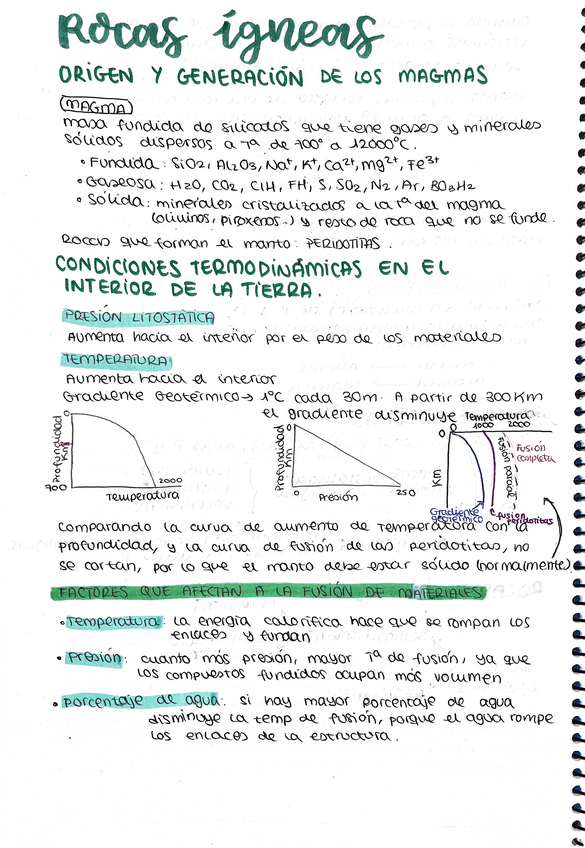 Rocas ígneas
ORIGEN Y GENERACIÓN DE LOS MAGMAS
MAGMA
masa fundida de silicados que tiene gases y minerales
sólidos dispersos a Tª de 700º a 12000ºC.
• Fundida: SiO2, Al2O3, Na+, K+, Ca2+, Mg2+, Fe3+
• Gaseosa: H2O, CO2, ClH, FH, S, SO2, N2, Ar, BO3H2
• Sólida: minerales cristalizados a la Tª del magma
(olivinos, piroxenos..) y resto de roca que no se funde.
Rocas que forman el manto: PERIDOTITAS.
CONDICIONES TERMODINÁMICAS EN EL
INTERIOR DE LA TIERRA.
PRESIÓN LITOSTÁTICA
Aumenta hacia el interior por el peso de los materiales
TEMPERATURA
Aumenta hacia el interior
Gradiente Geotérmico → 1ºC cada 30m. A partir de 300Km
el gradiente disminuye
0
Profundidad
Km
700
2000
Temperatura
0
Profundidad
Km
0
Presión
250
Temperatura
0 1000 2000
0
Km
Fusión
completa
Fusión parcial
Gradiente
geotérmico
Fusión
peridotitas
Comparando la curva de aumento de temperatura con la
profundidad, y la curva de fusión de las peridotitas, no
se cortan, por lo que el manto debe estar sólido (normalmente)
FACTORES QUE AFECTAN A LA FUSIÓN DE MATERIALES
• Temperatura: la energía calorífica hace que se rompan los
enlaces y fundan
• Presión: cuanto más presión, mayor Tª de fusión, ya que
los compuestos fundidos ocupan más volumen
• Porcentaje de agua: si hay mayor porcentaje de agua
disminuye la temp de fusión, porque el agua rompe
los enlaces de la estructura.